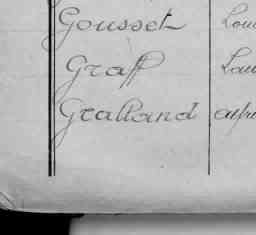 Gousset Lou
Graff Lau
Gralland alfr